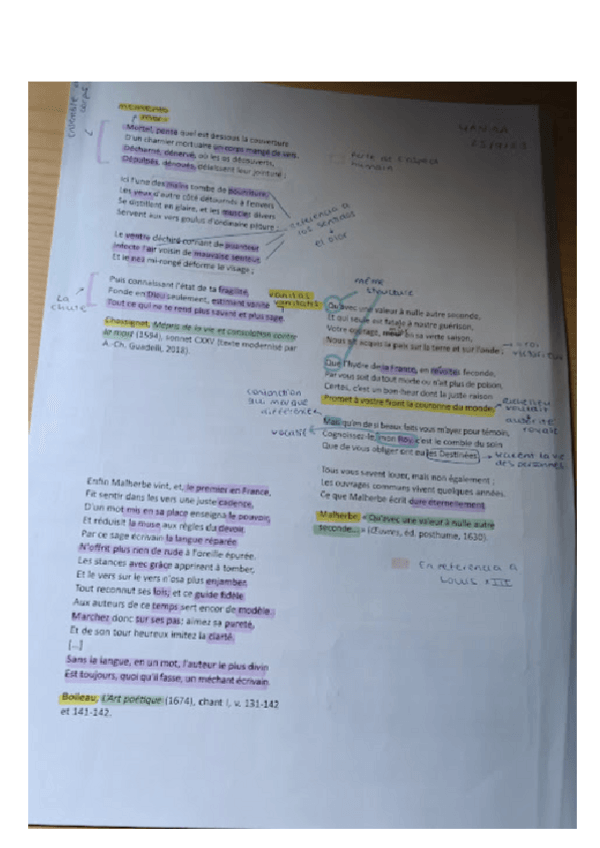 Mortel, pense quel est dessous la couverture
D'un charnier mortuaire un corps mangé de vers,
Décharné, dénervé, où les os découverts,
Dépulpés, dénoués, délaissent leur jointure ;
Ici l'une des mains tombe de pourriture,
Les yeux d'autre côté détournés à l'envers
Se distillent en glaire, et les muscles divers
Servent aux vers goulus d'ordinaire pâture ;
Le ventre déchiré cornant de puanteur
Infecte l'air voisin de mauvaise senteur,
Et le nez mi-rongé déforme le visage ;
Puis connaissant l'état de ta fragilité,
Fonde en Dieu seulement, estimant vanité
Tout ce qui ne te rend plus savant et plus sage.
Chassignet, Mépris de la vie et consolation contre
la mort (1594), sonnet CXXV (texte modernisé par
A.-Ch. Guedelli, 2018).
La
chute
referencia a
los sentidos
el olor
même
structure
Qu'avec une valeur à nulle autre seconde,
Et qui seule est fatale à nostre guérison,
Votre courage, meur en sa verte saison,
Nous ait acquis la paix sur la terre et sur l'onde ;
Que l'hydre de la France, en révoltes féconde,
Par vous soit du tout morte ou n'ait plus de poison,
Certes, c'est un bon heur dont la juste raison
Promet à vostre front la couronne du monde.
Mais qu'en de si beaux faits vous m'ayez pour témoin,
Cognoissez-le, mon Roy, c'est le comble du soin
Que de vous obliger ont eu les Destinées.
Tous vous savent louer, mais non également ;
Les ouvrages communs vivent quelques années,
Ce que Malherbe écrit dure éternellement.
Malherbe, « Qu'avec une valeur à nulle autre
seconde... » (Œuvres, éd. posthume, 1630).
conjonction
qui marque
différence
En referencia a
Louis XIII
Enfin Malherbe vint, et, le premier en France,
Fit sentir dans les vers une juste cadence,
D'un mot mis en sa place enseigna le pouvoir,
Et réduisit la muse aux règles du devoir.
Par ce sage écrivain la langue réparée
N'offrit plus rien de rude à l'oreille épurée.
Les stances avec grâce apprirent à tomber,
Et le vers sur le vers n'osa plus enjamber.
Tout reconnut ses lois; et ce guide fidèle
Aux auteurs de ce temps sert encor de modèle.
Marchez donc sur ses pas; aimez sa pureté,
Et de son tour heureux imitez la clarté.
[...]
Sans la langue, en un mot, l'auteur le plus divin
Est toujours, quoi qu'il fasse, un méchant écrivain.
Boileau, L'Art poétique (1674), chant I, v. 131-142
et 141-142.